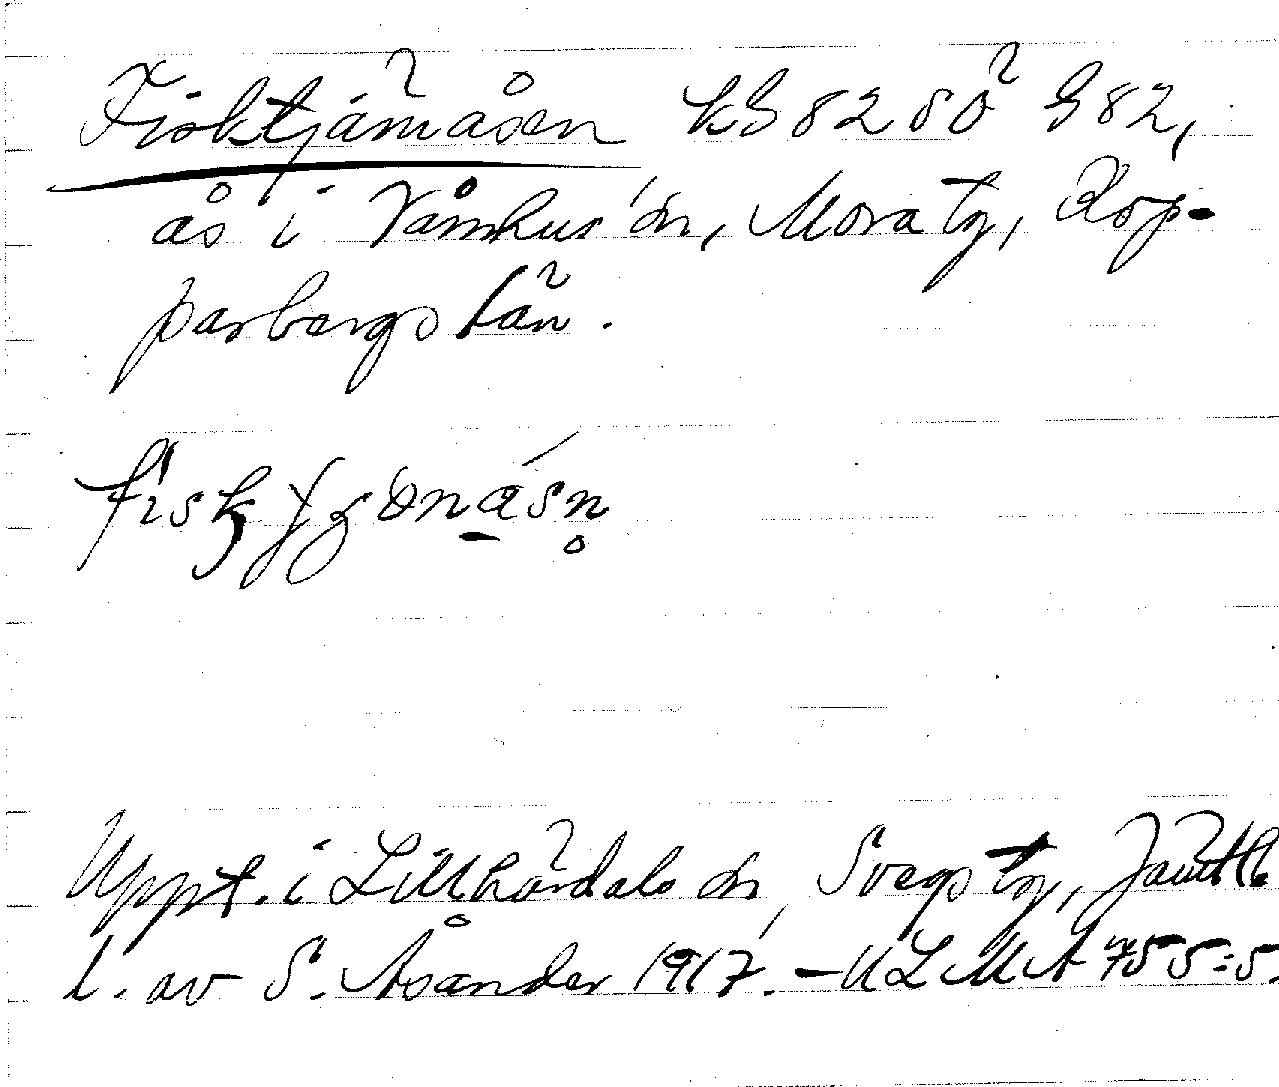 Fisktjärnåsen kG 8280 ö G82,
ås i Våmhus sn, Mora tg, Kop-
parbergs län.
Uppt. i Lillhärdals sn, Svegs tg, Jämtl.
l. av S. Åsander 1917. – ULMA 755:5.